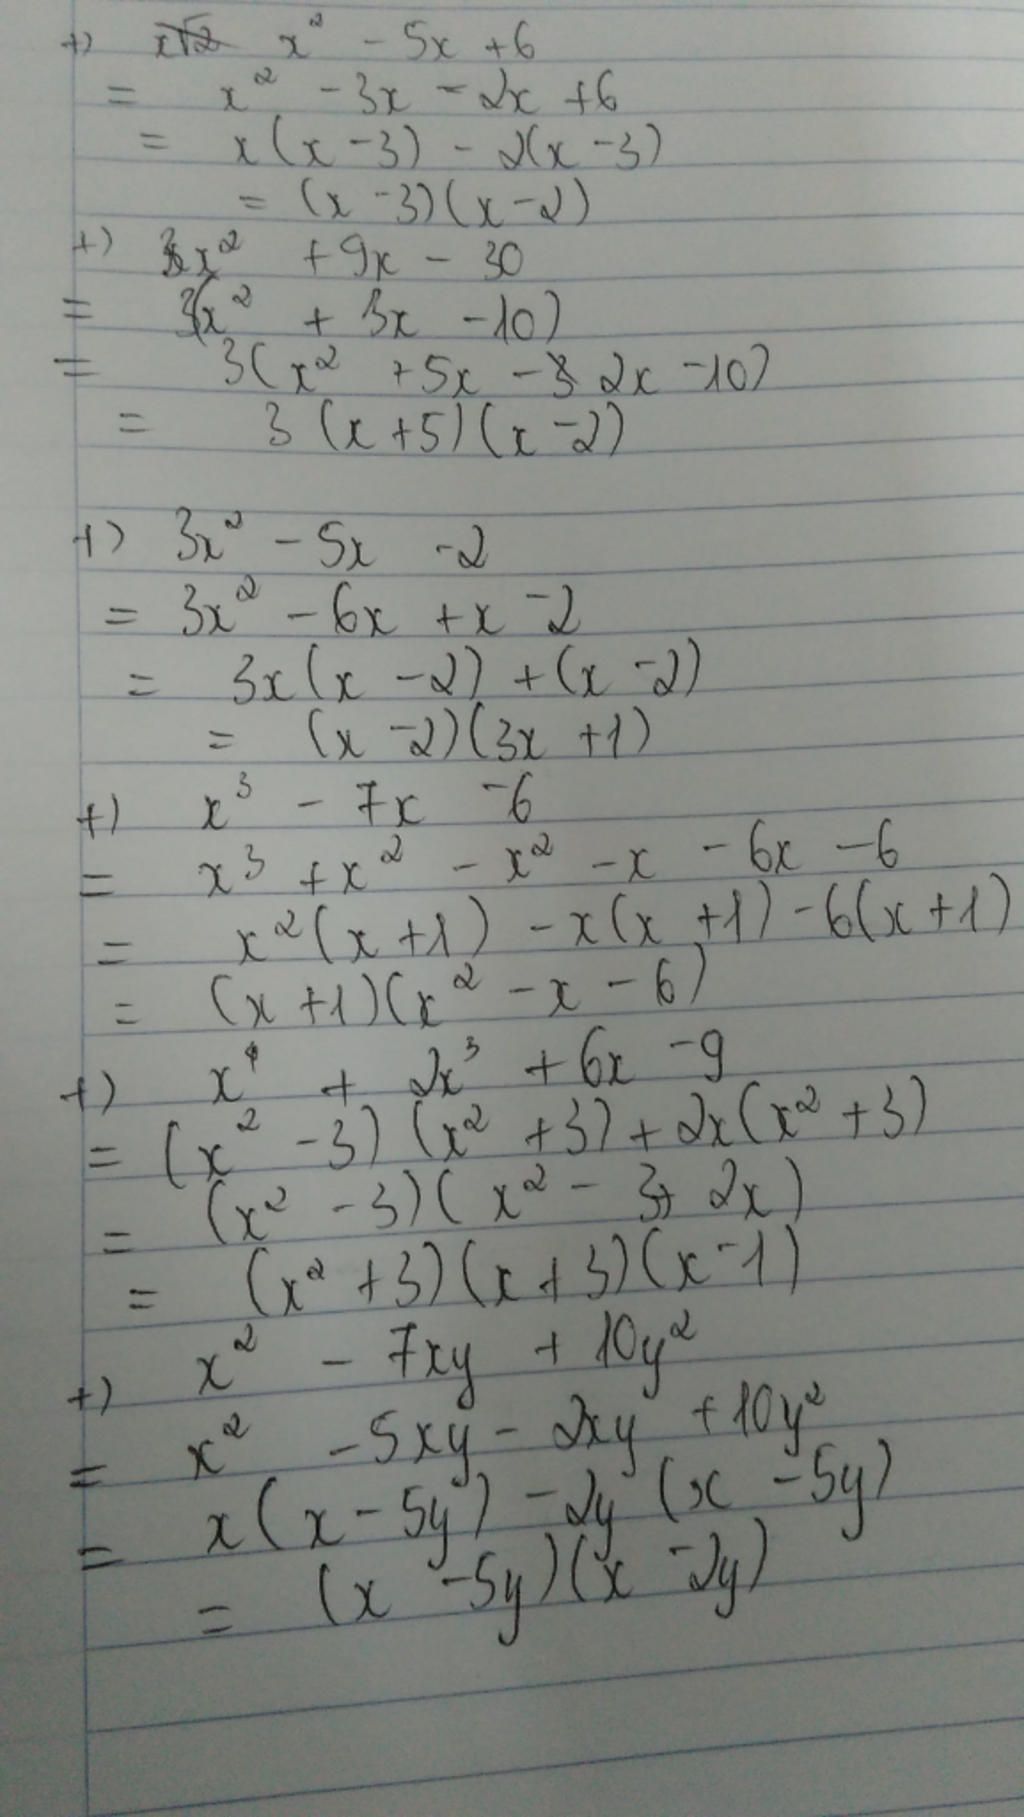 +) x² - 5x + 6
= x² - 3x - 2x + 6
= x(x - 3) - 2(x - 3)
= (x - 3)(x - 2)
+) 3x² + 9x - 30
= 3(x² + 3x - 10)
= 3(x² + 5x - 2x - 10)
= 3(x + 5)(x - 2)
+) 3x² - 5x - 2
= 3x² - 6x + x - 2
= 3x(x - 2) + (x - 2)
= (x - 2)(3x + 1)
+) x³ - 7x - 6
= x³ + x² - x² - x - 6x - 6
= x²(x + 1) - x(x + 1) - 6(x + 1)
= (x + 1)(x² - x - 6)
+) x⁴ + 2x³ + 6x - 9
= (x² - 3)(x² + 3) + 2x(x² + 3)
= (x² - 3)(x² - 3 + 2x)
= (x² + 3)(x + 3)(x - 1)
+) x² - 7xy + 10y²
= x² - 5xy - 2xy + 10y²
= x(x - 5y) - 2y(x - 5y)
= (x - 5y)(x - 2y)